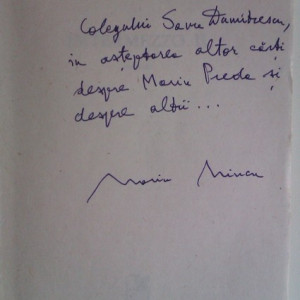 Colegului Savu Dumitrescu,
în așteptarea altor cărți
despre Marin Preda și
despre alții...
Marin Mincu